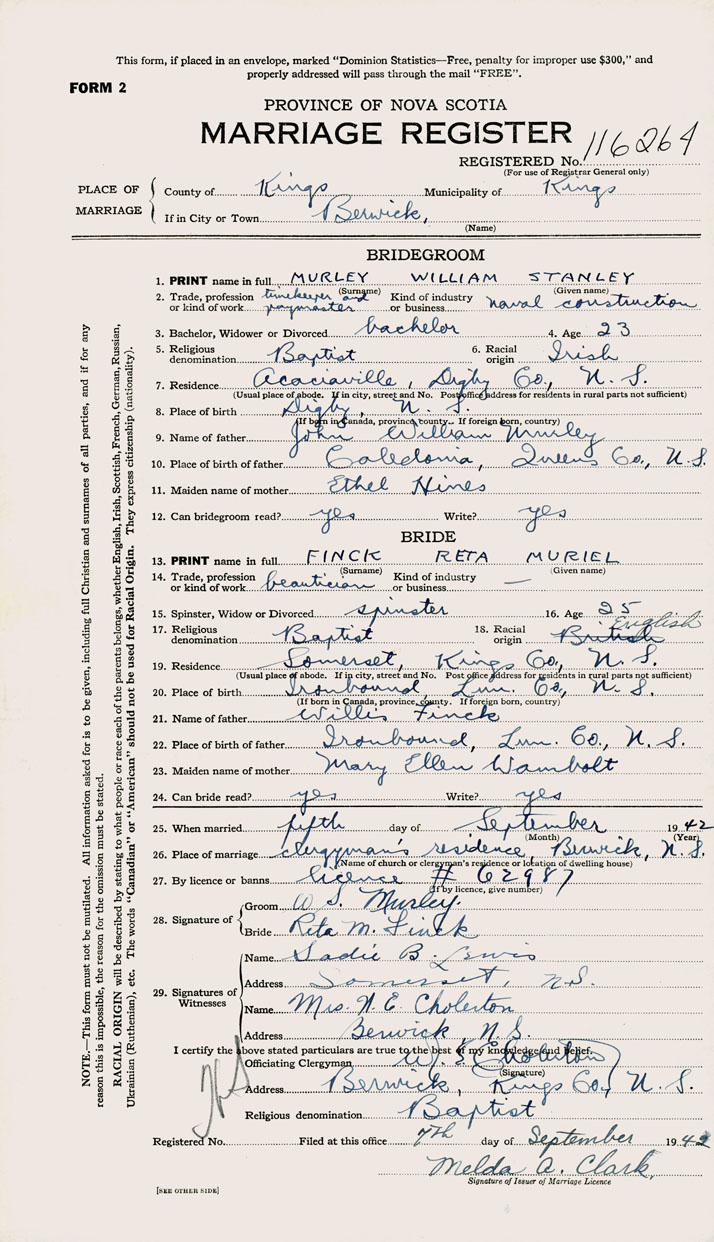 This form, if placed in an envelope, marked “Dominion Statistics—Free, penalty for improper use $300,” and
properly addressed will pass through the mail “FREE”.
FORM 2
PROVINCE OF NOVA SCOTIA
MARRIAGE REGISTER
REGISTERED No. 116264
(For use of Registrar General only)
PLACE OF MARRIAGE
County of Kings Municipality of Kings
If in City or Town Berwick,
(Name)
BRIDEGROOM
1. PRINT name in full MURLEY WILLIAM STANLEY
(Surname) (Given name)
2. Trade, profession or kind of work timekeeper and paymaster Kind of industry or business naval construction
3. Bachelor, Widower or Divorced bachelor 4. Age 23
5. Religious denomination Baptist 6. Racial origin Irish
7. Residence Acaciaville, Digby Co., N. S.
(Usual place of abode. If in city, street and No. Post office address for residents in rural parts not sufficient)
8. Place of birth Digby, N. S.
(If born in Canada, province, county. If foreign born, country)
9. Name of father John William Murley
10. Place of birth of father Caledonia, Queens Co., N.S.
11. Maiden name of mother Ethel Hines
12. Can bridegroom read? yes Write? yes
BRIDE
13. PRINT name in full FINCK RETA MURIEL
(Surname) (Given name)
14. Trade, profession or kind of work beautician Kind of industry or business —
15. Spinster, Widow or Divorced spinster 16. Age 25
17. Religious denomination Baptist 18. Racial origin British English
19. Residence Somerset, Kings Co., N. S.
(Usual place of abode. If in city, street and No. Post office address for residents in rural parts not sufficient)
20. Place of birth Ironbound, Lun. Co., N. S.
(If born in Canada, province, county. If foreign born, country)
21. Name of father Willis Finck
22. Place of birth of father Ironbound, Lun. Co., N. S.
23. Maiden name of mother Mary Ellen Wambolt
24. Can bride read? yes Write? yes
25. When married fifth day of September 1942
(Month) (Year)
26. Place of marriage clergyman's residence, Berwick, N. S.
(Name of church or clergyman's residence or location of dwelling house)
27. By licence or banns licence # 62987
(If by licence, give number)
28. Signature of
Groom W S. Murley.
Bride Reta M. Finck
29. Signatures of Witnesses
Name Sadie B. Lewis
Address Somerset, N.S.
Name Mrs. W. E. Cholerton
Address Berwick N. S.
I certify the above stated particulars are true to the best of my knowledge and belief.
Officiating Clergyman W. E. Cholerton
(Signature)
Address Berwick, Kings Co., N. S.
Religious denomination Baptist
Registered No. Filed at this office 7th day of September 1942
Melda A. Clark,
Signature of Issuer of Marriage Licence
[SEE OTHER SIDE]
NOTE.—This form must not be mutilated. All information asked for is to be given, including full Christian and surnames of all parties, and if for any
reason this is impossible, the reason for the omission must be stated.
RACIAL ORIGIN will be described by stating to what people or race each of the parents belongs, whether English, Irish, Scottish, French, German, Russian,
Ukrainian (Ruthenian), etc. The words “Canadian” or “American” should not be used for Racial Origin. They express citizenship (nationality).